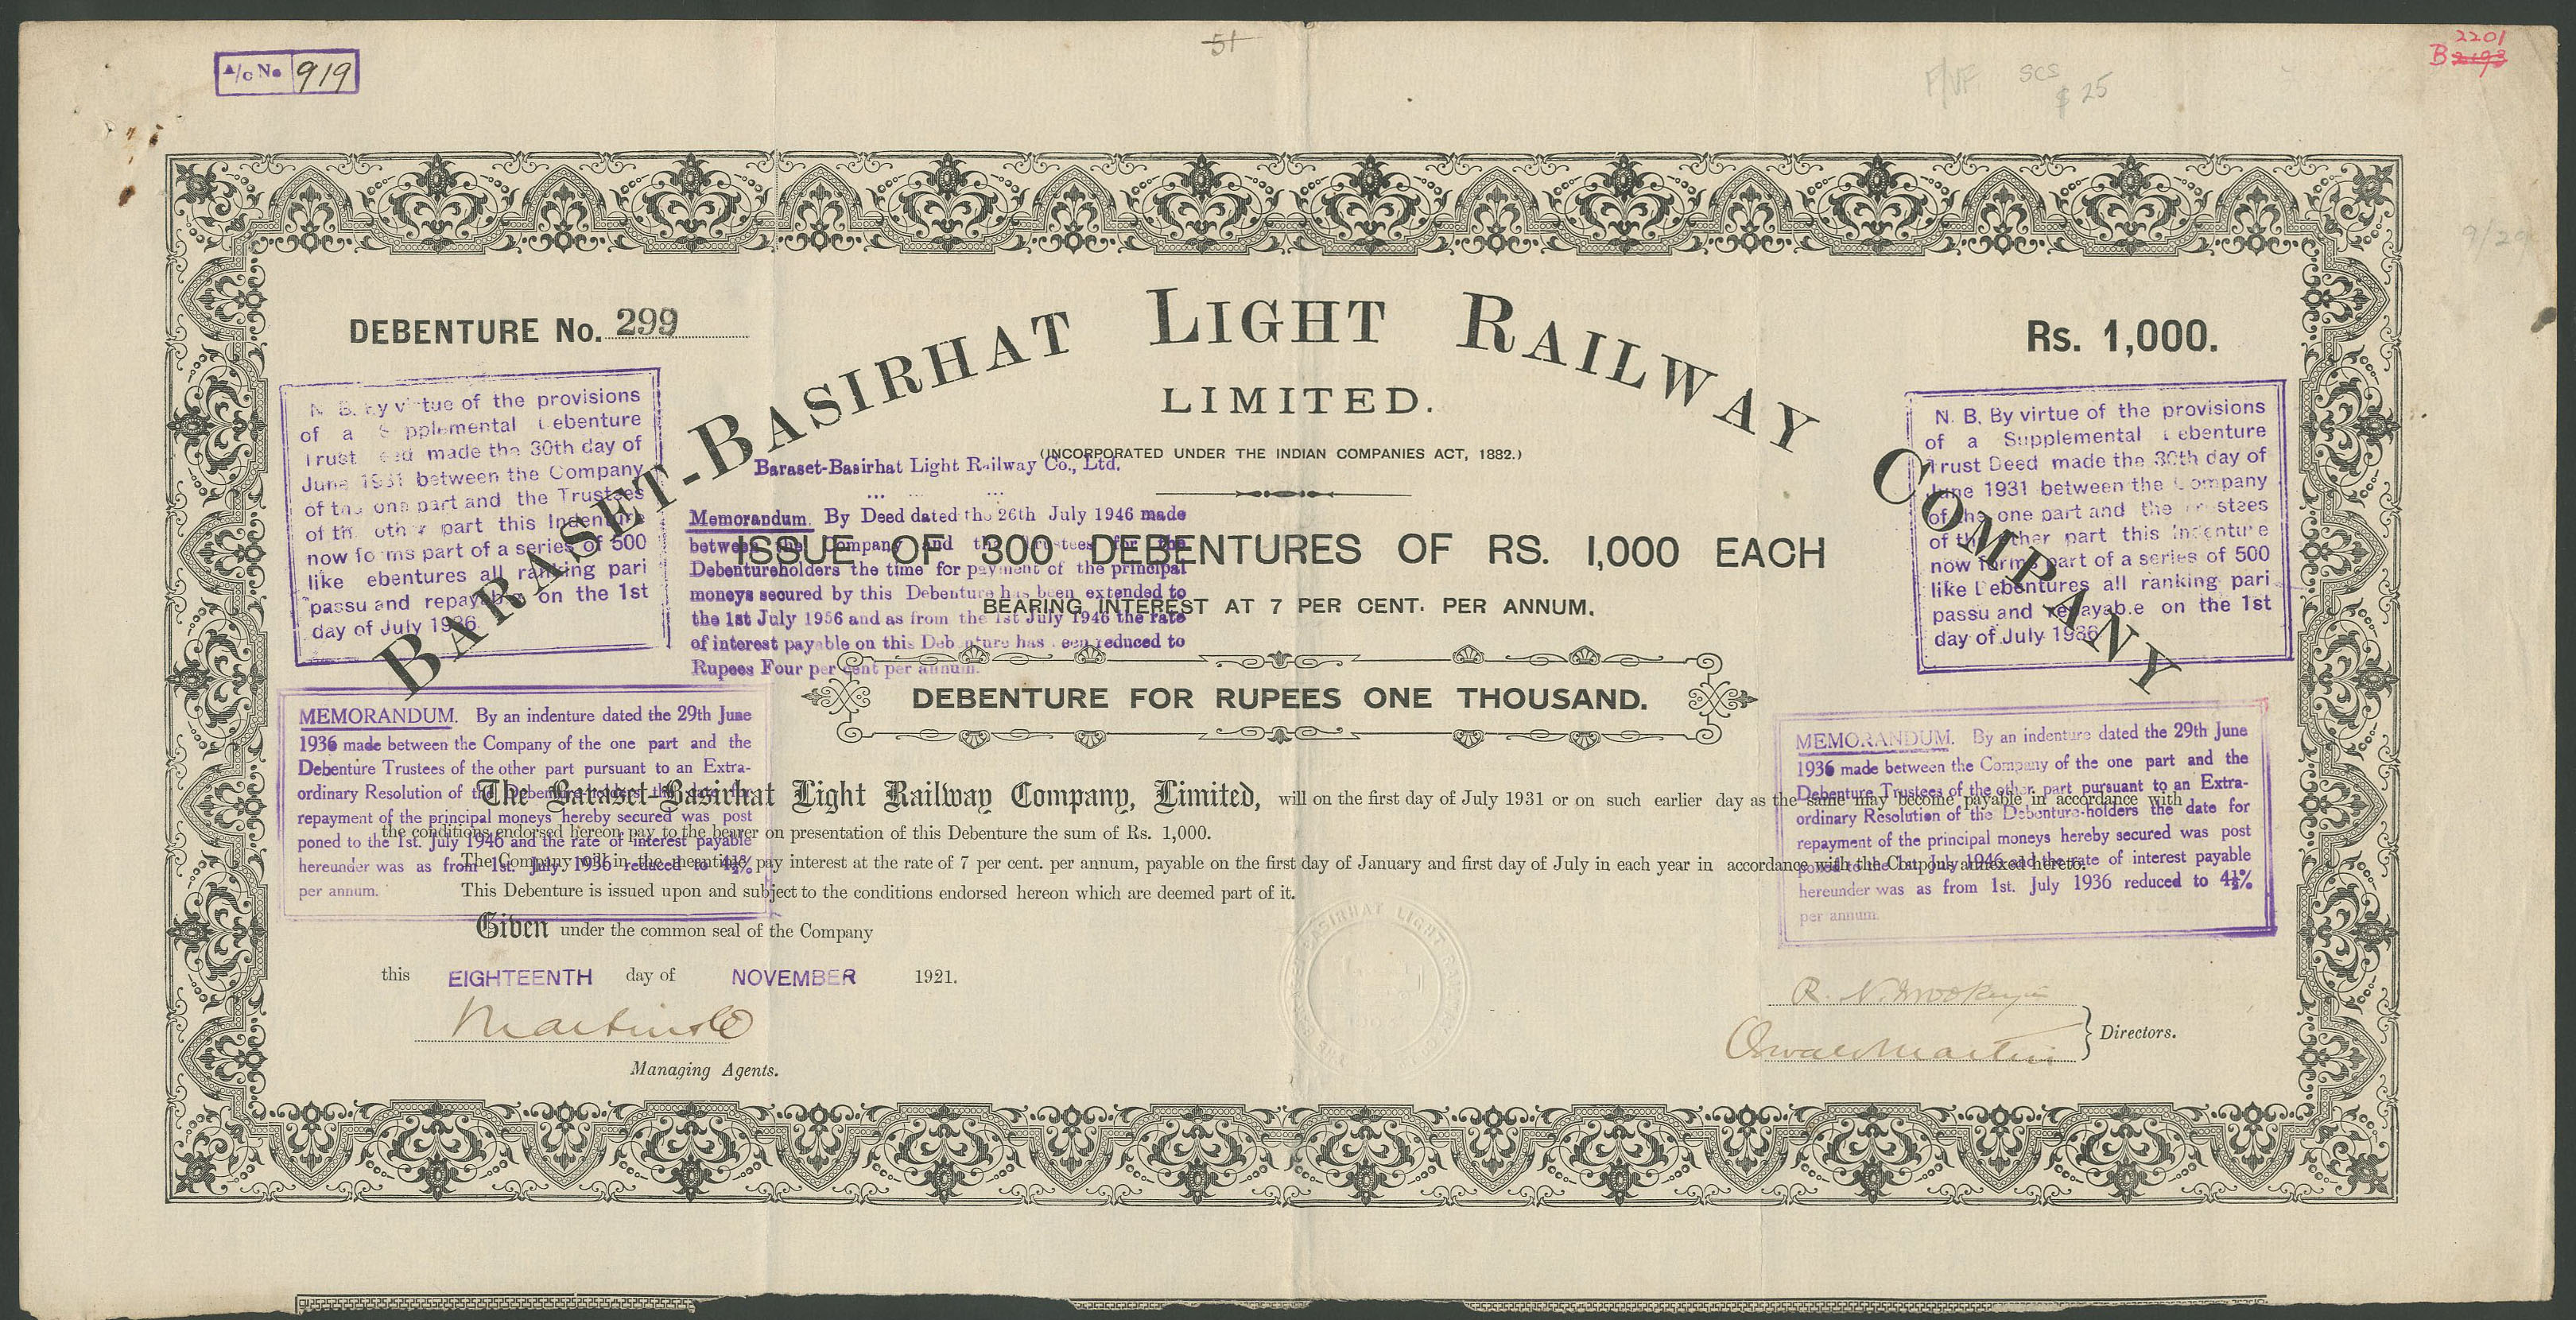 A/c No 919
51
2201
B 2193
F/VF SCS
$ 25
9/29
DEBENTURE No. 299
BARASET-BASIRHAT LIGHT RAILWAY COMPANY
LIMITED.
Rs. 1,000.
(INCORPORATED UNDER THE INDIAN COMPANIES ACT, 1882.)
N. B. By virtue of the provisions
of a Supplemental Debenture
Trust Deed made the 30th day of
June 1931 between the Company
of the one part and the Trustees
of the other part this Indenture
now forms part of a series of 500
like ebentures all ranking pari
passu and repayable on the 1st
day of July 1936.
Baraset-Basirhat Light Railway Co., Ltd.
Memorandum. By Deed dated the 26th July 1946 made
between the Company and the Trustees for the
Debentureholders the time for payment of the principal
moneys secured by this Debenture has been extended to
the 1st July 1956 and as from the 1st July 1946 the rate
of interest payable on this Debenture has been reduced to
Rupees Four per cent per annum.
N. B. By virtue of the provisions
of a Supplemental Debenture
Trust Deed made the 30th day of
June 1931 between the Company
of the one part and the Trustees
of the other part this Indenture
now forms part of a series of 500
like Debentures all ranking pari
passu and repayable on the 1st
day of July 1936
ISSUE OF 300 DEBENTURES OF RS. 1,000 EACH
BEARING INTEREST AT 7 PER CENT. PER ANNUM.
DEBENTURE FOR RUPEES ONE THOUSAND.
MEMORANDUM. By an indenture dated the 29th June
1936 made between the Company of the one part and the
Debenture Trustees of the other part pursuant to an Extra-
ordinary Resolution of the Debenture-holders the date for
repayment of the principal moneys hereby secured was post
poned to the 1st. July 1946 and the rate of interest payable
hereunder was as from 1st. July 1936 reduced to 4½%
per annum.
MEMORANDUM. By an indenture dated the 29th June
1936 made between the Company of the one part and the
Debenture Trustees of the other part pursuant to an Extra-
ordinary Resolution of the Debenture-holders the date for
repayment of the principal moneys hereby secured was post
poned to the 1st. July 1946 and the rate of interest payable
hereunder was as from 1st. July 1936 reduced to 4½%
per annum.
The Baraset-Basirhat Light Railway Company, Limited, will on the first day of July 1931 or on such earlier day as the same may become payable in accordance with
the conditions endorsed hereon pay to the bearer on presentation of this Debenture the sum of Rs. 1,000.
The Company will in the meantime pay interest at the rate of 7 per cent. per annum, payable on the first day of January and first day of July in each year in accordance with the Coupons annexed hereto.
This Debenture is issued upon and subject to the conditions endorsed hereon which are deemed part of it.
Given under the common seal of the Company
this EIGHTEENTH day of NOVEMBER 1921.
Martin & Co
Managing Agents.
R. N. Mookerjee
Oswald Martin
Directors.